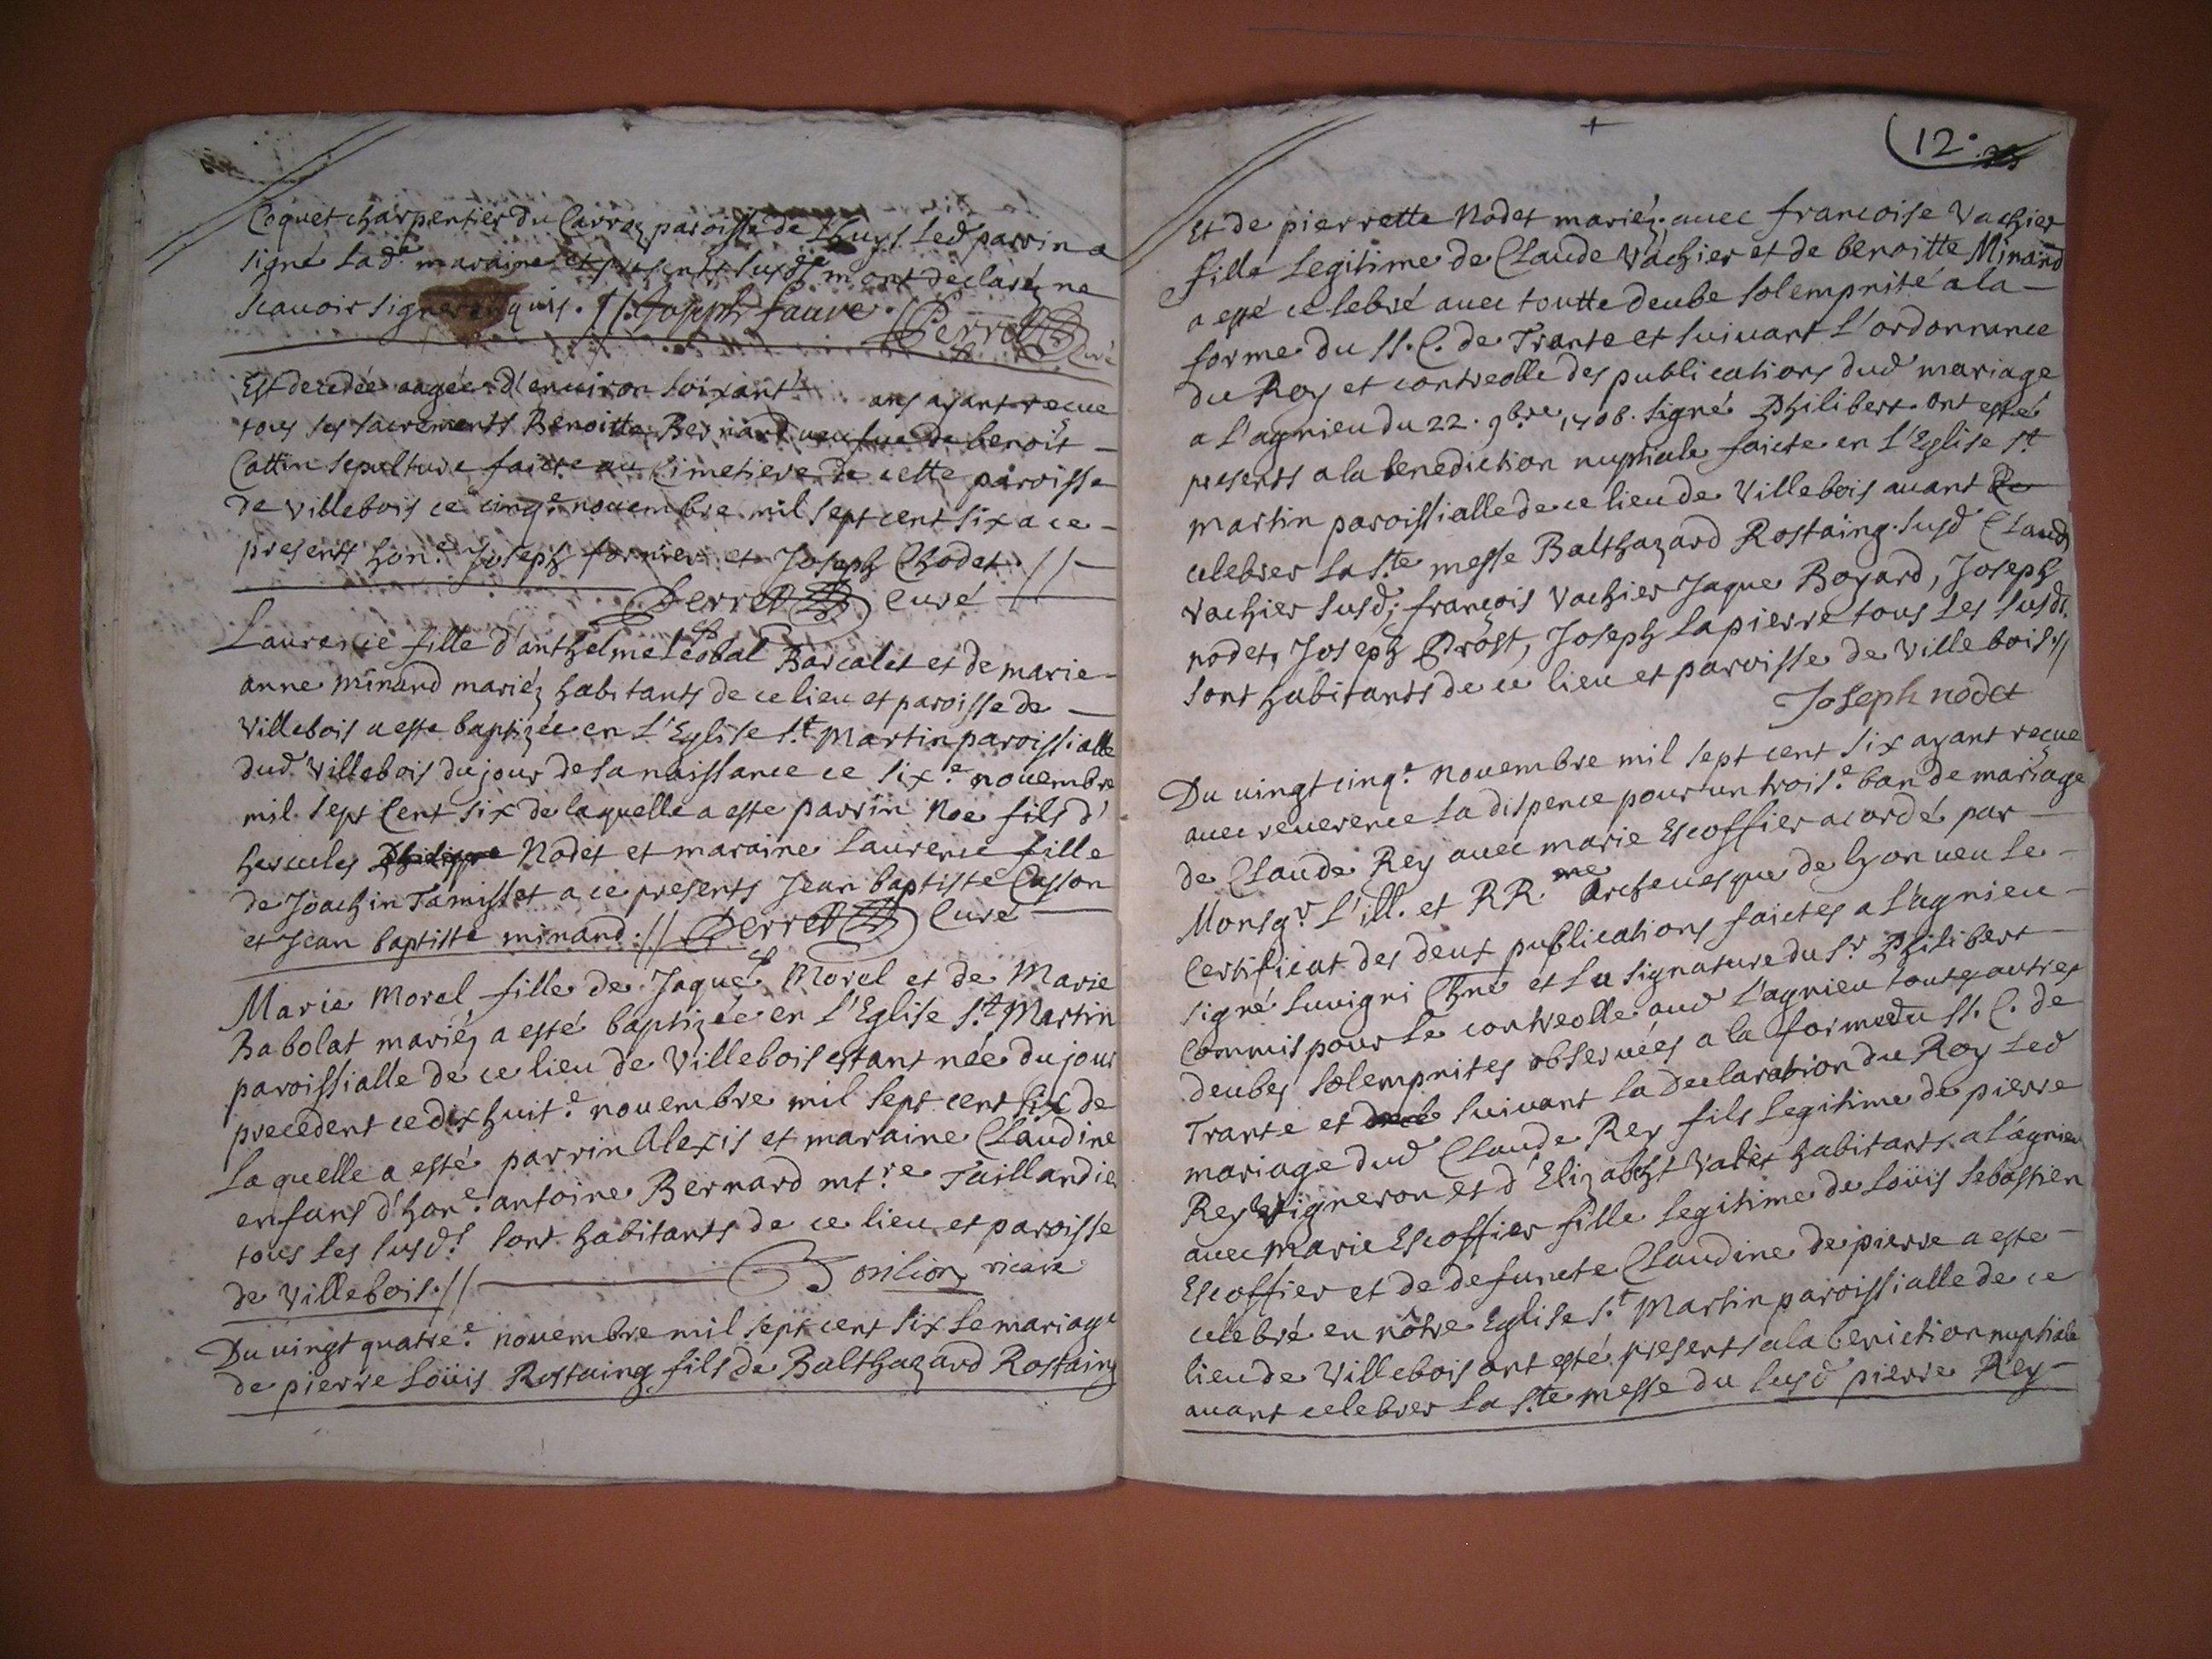 Coquet charpentier du Carroz paroisse de Lhuys. Led parrin a
signé lad.e maraine et presents susd.s m'ont declaréz ne
scauoir signer enquis. // Joseph faure. Perret
Curé
Est decedée aagée d'enuiron soixant' ans ayant recue
tous ses sacrements Benoitte Bernard ueufue de benoit
Cattin sepulture faicte au cimetiere de cette paroisse
de villebois ce cinq.e nouembre mil sept cent six a ce
presents hon.e Joseph fornier et Joseph Chodet. //
Perret Curé
Laurence fille d'anthelme Barcalet et de marie
anne minand mariéz habitants de ce lieu et paroisse de
villebois a esté baptizée en L'Eglise S.t Martin paroissialle
dud villebois du jour de sa naissance ce six.e nouembre
mil sept Cent six de laquelle a este parrin Noe fils d'
hercules Nodet et maraine Laurence fille
de Joachin Tamisset a ce presents Jean baptiste Casson
et Jean baptiste minand. // Perret Curé
Marie Morel fille de Jaque Morel et de Marie
Babolat mariéz a esté baptizée en L'Eglise S.t Martin
paroissialle de ce lieu de Villebois estant née du jour
precedent ce dix huit.e nouembre mil sept cent six de
Laquelle a esté parrin Alexis et maraine Claudine
enfans d'hon.e antoine Bernard mt.re Taillandie
tous les susd.s sont habitants de ce lieu et paroisse
de Villebois. // vicaire
Du uingt quatre.e nouembre mil sept cent six Le mariage
de pierre Loüis Rostaing fils de Balthazard Rostaing
12.
Et de pierrette Nodet mariéz. auec francoise Vachier
fille Legitime de Claude Vachier et de benoitte Minand
a esté celebré auec toutte deube solempnité a la
forme du SS. C. de Trante et suiuant L'ordonnance
du Roy et contreolle des publications dud mariage
a L'agnieu du 22. 9bre 1706. signé Philibert ont esté
presents a la benediction nuptiale faicte en L'Eglise S.t
martin paroissialle de ce lieu de Villebois auant
celebrer La S.te messe Balthazard Rostaing susd Claud
Vachier susd; françois Vachier Jaque Bozard, Joseph
nodet, Joseph Prost, Joseph Lapierre tous les susd.s
sont habitants de ce lieu et paroisse de villebois. //
Joseph nodet
Du uingt cinq.e nouembre mil sept cent six ayant recue
auec reuerence La dispence pour un trois.e ban de mariage
de Claude Rey auec marie Escoffier acordé par
Monsg.r L'ill. et RR.me Archeuesque de Lyon ueu Le
Certificat des deux publications faictes a L'agnieu
signé suuigni Chne et La signature du S.r Philibert
Commis pour Le contreolle aud L'agnieu toutes autres
deubes solempnites obseruées a la forme du SS. C. de
Trante et suiuant La Declaration du Roy Led
mariage dud Claude Rey fils Legitime de pierre
Rey Vigneron et d'Elizabeht Valet habitants a L'agnieu
auec marie Escoffier fille Legitime de Loüis Sebastien
Escoffier et de defuncte Claudine de pierre a esté
celebré en nôtre Eglise S.t Martin paroissialle de ce
lieu de Villebois ont esté presents a la beniction nuptiale
auant celebrer La S.te messe du susd pierre Rey